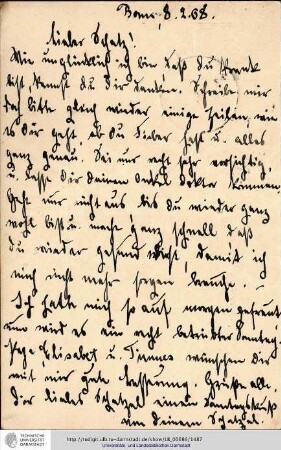 Bonn, 8.2.08.
Lieber Schatz!
Wie unglücklich ich bin daß Du krank
bist, kannst Du Dir denken. Schreibe mir
doch bitte gleich wieder einige Zeilen, wie
es Dir geht ob Du Fieber hast u. alles
ganz genau. Sei nur recht sehr vorsichtig,
u. lasse Dir Deinen Onkel Doktor kommen.
Geh nur nicht aus bis Du wieder ganz
wohl bist u. mache ganz schnell daß
Du wieder gesund wirst, damit ich
mich nicht mehr sorgen brauche. –
Ich hatte mich so auf morgen gefreut
nun wird es ein recht betrübter Sonntag.
Elisabet u. wünschen Dir
mit mir gute Besserung. Grüße alle.
Dir liebes Schatzel einen Sonntagskuß
von Deinem Schatzel.
TECHNISCHE UNIVERSITÄT DARMSTADT
Universitäts- und Landesbibliothek Darmstadt